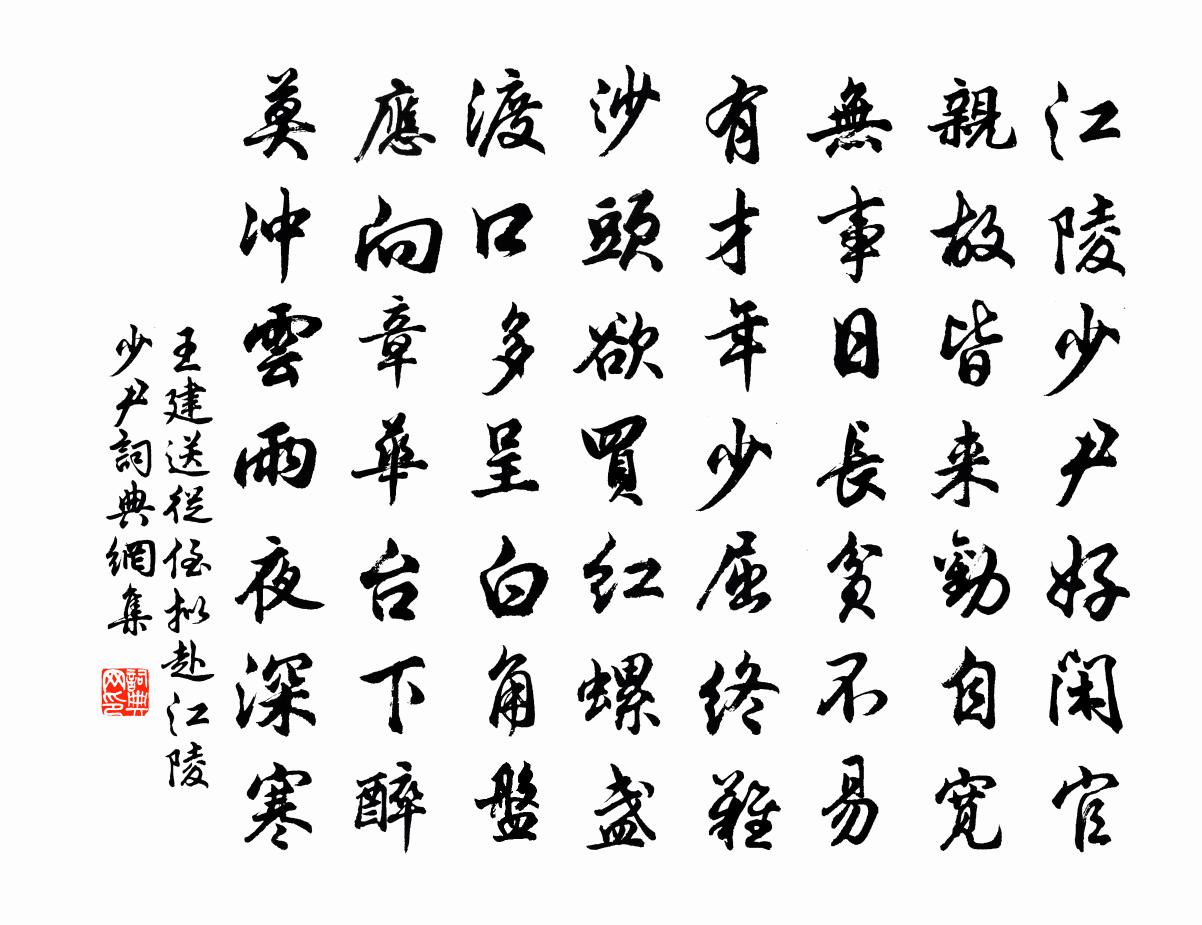 江陵少尹好闲官
親故皆来勸自寬
無事日長貧不易
有才年少屈終難
沙頭欲買紅螺盞
渡口多呈白角盤
應向章華台下醉
莫冲雲雨夜深寒
王建送從侄拟赴江陵
少尹詞典網集
詞典网印